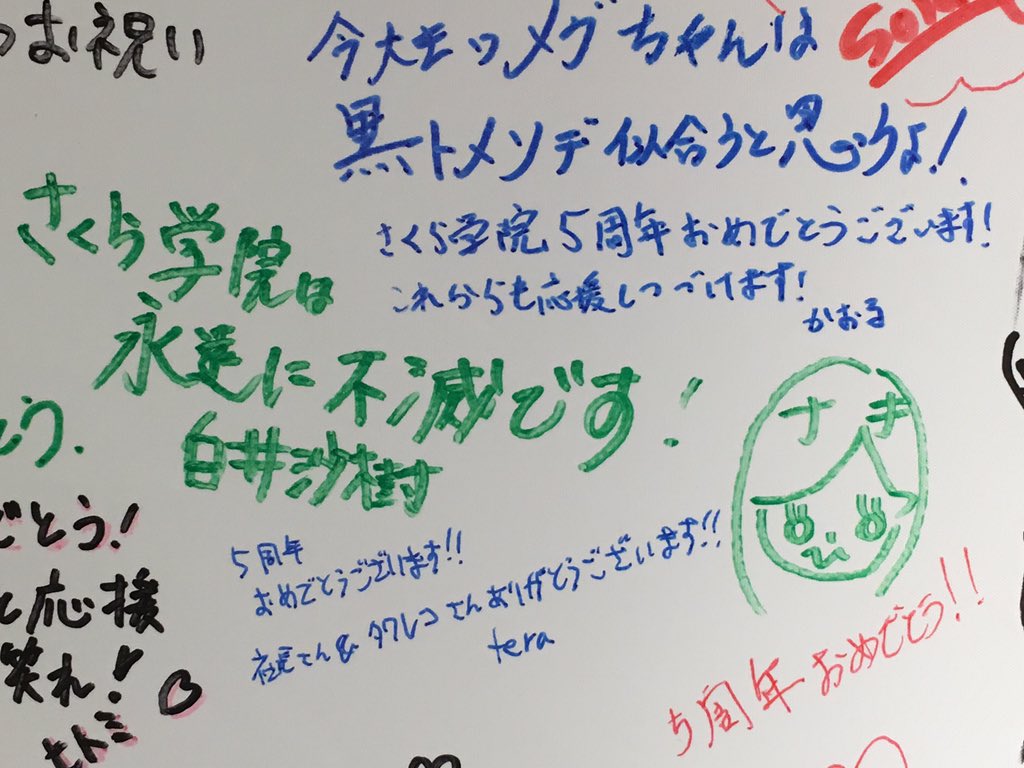 のお祝い
今大モツメグちゃんは
黒トメソデ似合うと思うよ!
さくら学院5周年おめでとうございます!
これからも応援しつづけます!
かおる
さくら学院は
永遠に不滅です!
白井沙樹
とう.
ナキ
5周年
おめでとうございます!!
社長さん& タワレコさんありがとうございます!!
tera
ごとう!
応援
笑れ!
ヒトミ
5周年おめでとう!!